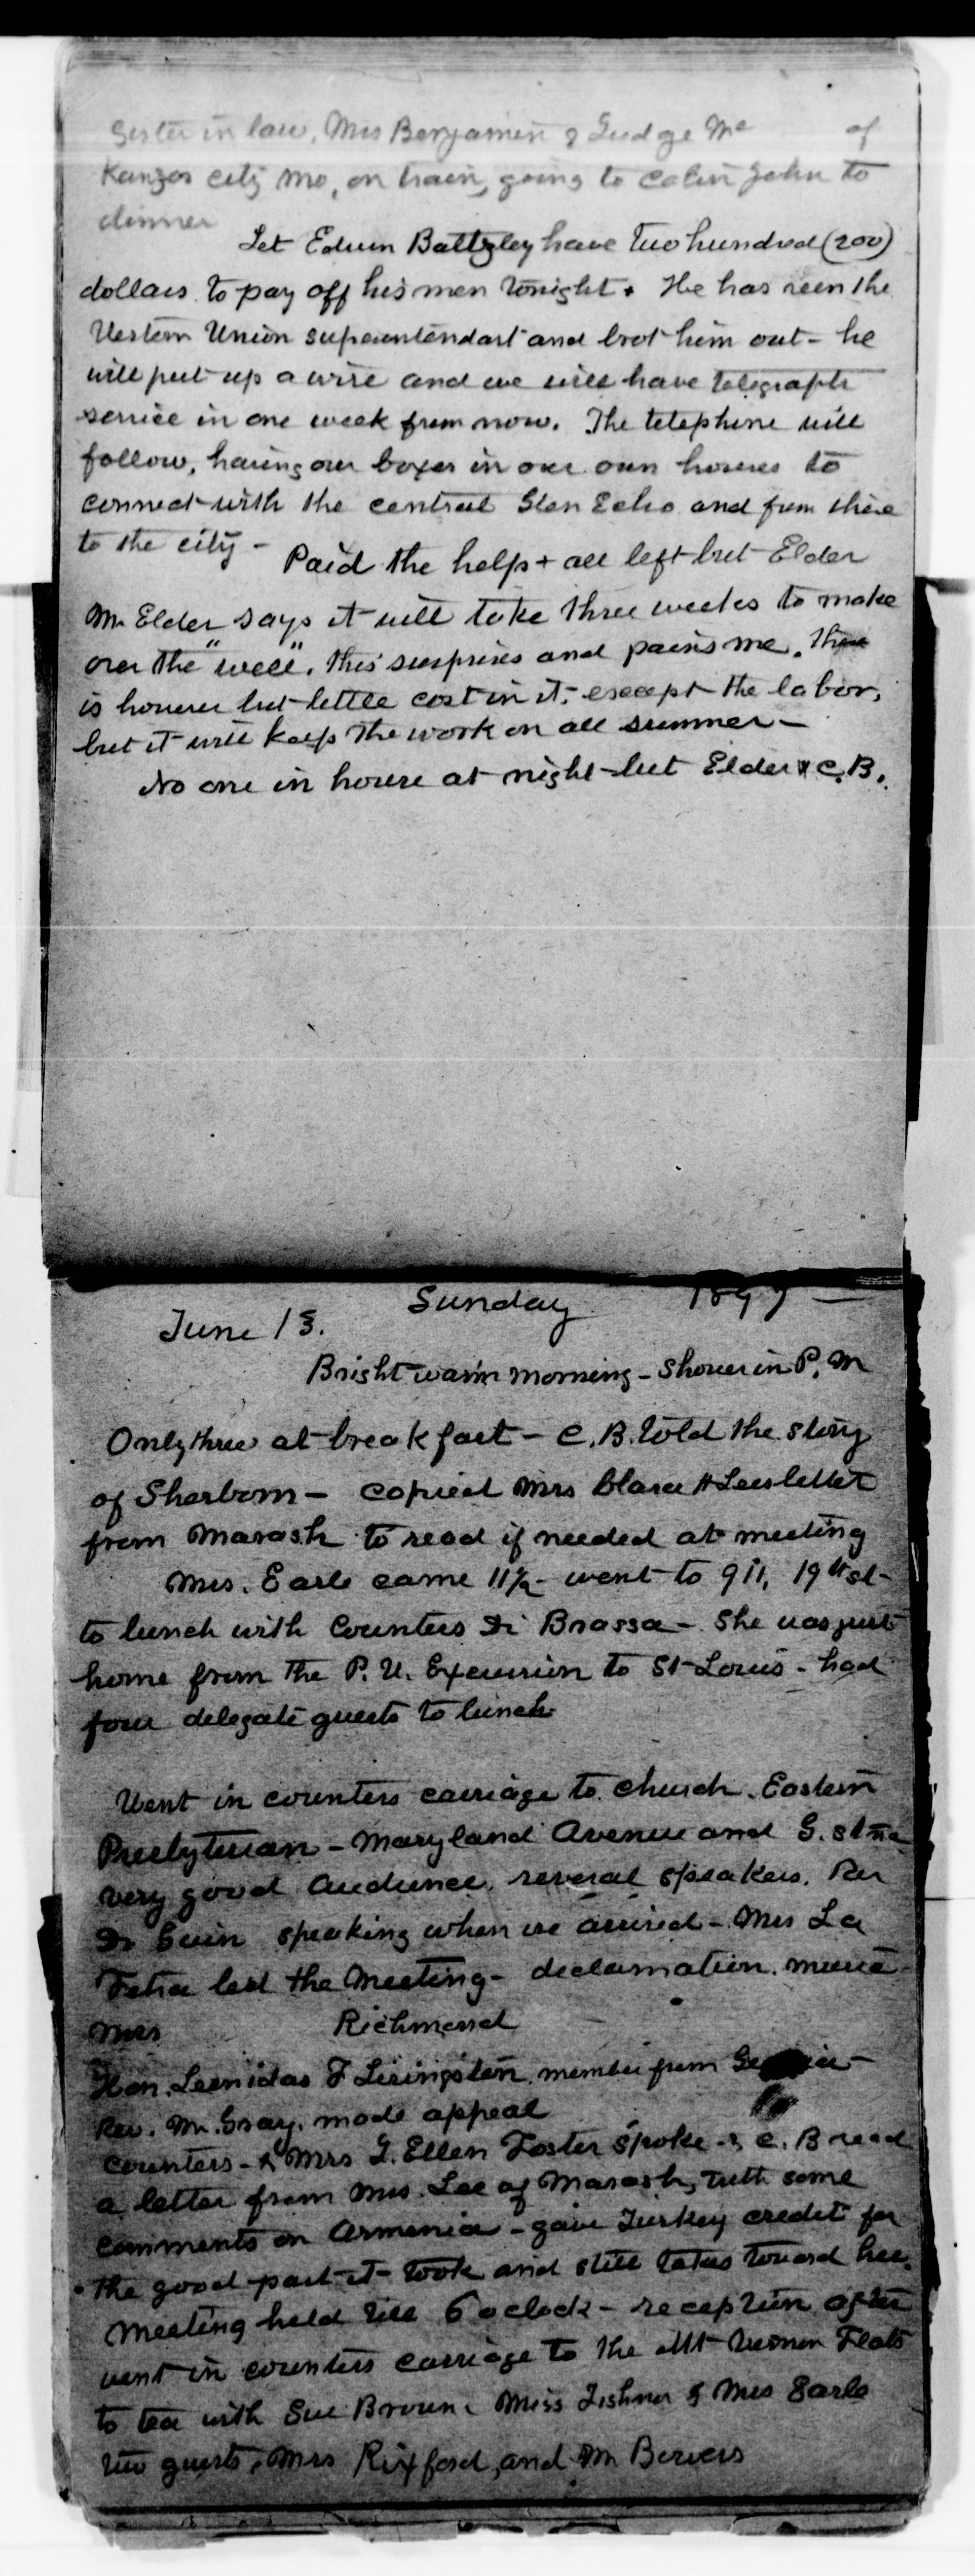 Sister in law, Mrs Benjamin & Judge Mc of
Kanzas city Mo, on train, going to Cabin John to
dinner
Let Edwin Baltzley have two hundred (200)
dollars to pay off his men tonight. He has seen the
Western Union superintendant and brot him out - he
will put up a wire and we will have telegraph
service in one week from now. The telephone will
follow, having our boxes in our own houses to
connect with the central Glen Echo and from there
to the city -
Paid the help + all left but Elder
Mr Elder says it will take three weeks to make
over the "well". this surprises and pains me. There
is however but little cost in it, except the labor,
but it will keep the work on all summer -
No one in house at night but Elder & C.B.
June 13. Sunday 1897 -
Bright warm morning - Shower in P. M
Only three at breakfast - C. B. told the story
of Sherborn - copied Mrs Clara H Lees letter
from Marash to read if needed at meeting
Mrs. Earle came 11½ - went to 911, 19th st -
to lunch with Countess Di Brassa - She was just
home from the P. U. Excursion to St Louis - had
four delegate guests to lunch
Went in countess carriage to church. Eastern
Presbyterian - Maryland Avenue and G. st ne
very good audience, several speakers. Rev
Dr speaking when we arrived - Mrs La
Fetra led the Meeting - declamation. music -
Mrs Richmond
Hon. Leonidas F Livingston, member from Georgia -
Rev. Mr. Gray, made appeal
Countess - & Mrs J. Ellen Foster spoke - & C. B read
a letter from Mrs. Lee of Marash, with some
comments on Armenia - gave Turkey credit for
the good part it took and still takes toward her.
Meeting held till 6 oclock - reception after
went in countess carriage to the Mt Vernon Flats
to tea with Sue Brown. Miss & Mrs Earle
two guests, Mrs Rixford, and Mr